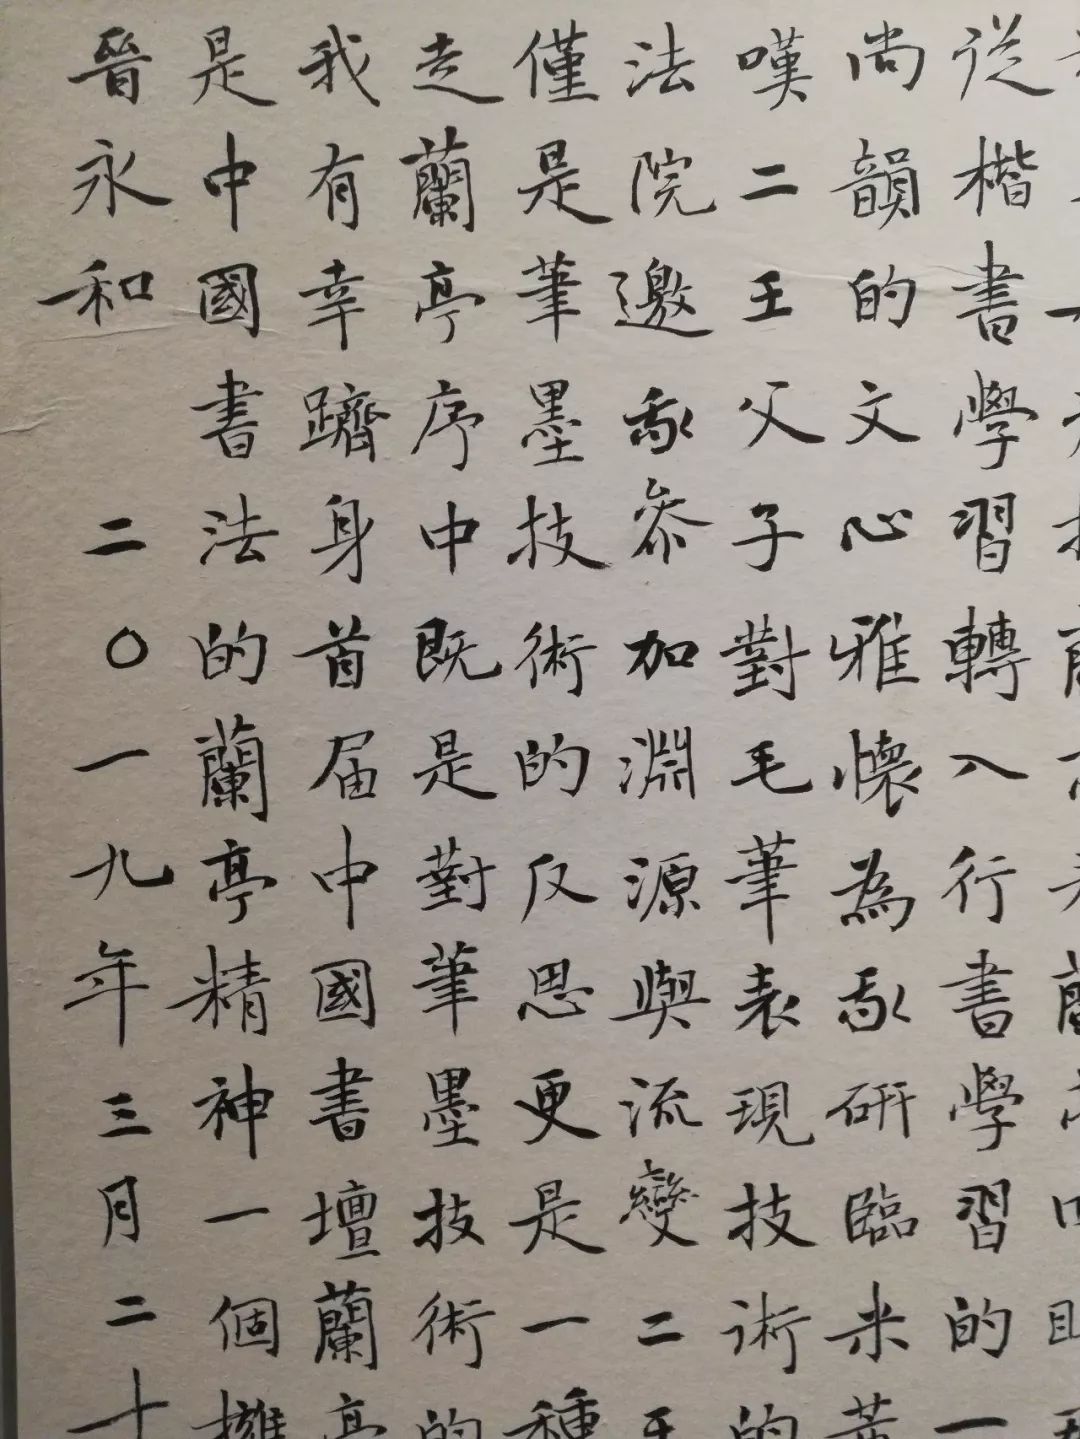 從楷書學習轉入行書學習的一
尚韻的文心雅懷為我研臨米黄
嘆二王父子對毛筆表現技術的
法院邀我參加淵源與流變二王
僅是筆墨技術的反思更是一種
走蘭亭序中既是對筆墨技術的
我有幸躋身首届中國書壇蘭亭
是中國書法的蘭亭精神一個擁
晉永和 二〇一九年三月二十